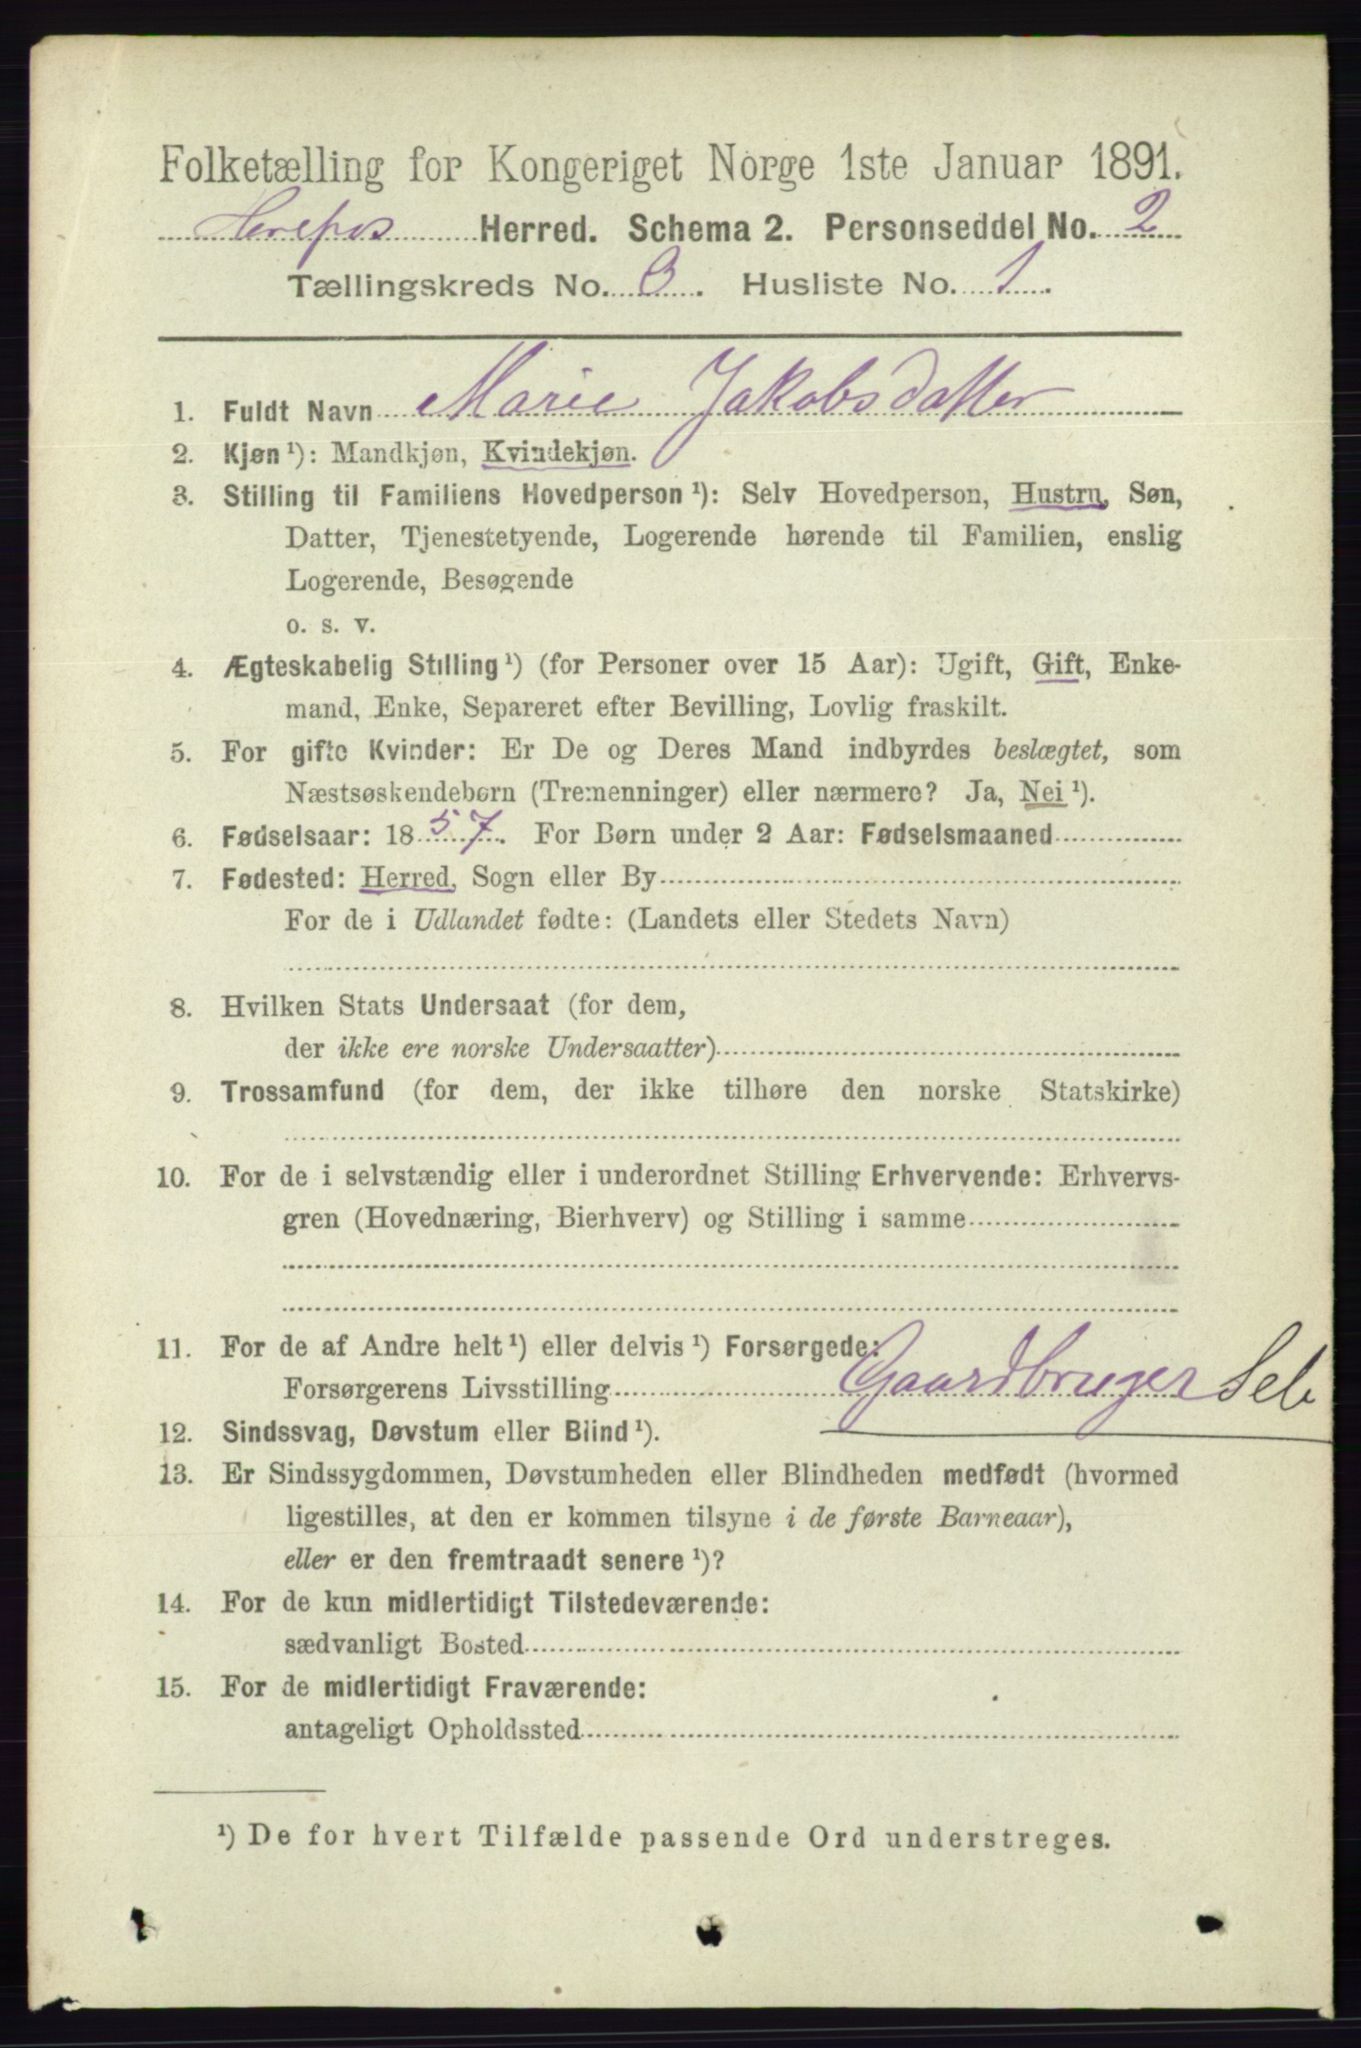 Folketælling for Kongeriget Norge 1ste Januar 1891.
Herred. Schema 2. Personseddel No. 2
Tællingskreds No. 3. Husliste No. 1.
1. Fuldt Navn Marie Jakobsdatter
2. Kjøn ¹): Mandkjøn, Kvindekjøn.
3. Stilling til Familiens Hovedperson ¹): Selv Hovedperson, Hustru, Søn,
Datter, Tjenestetyende, Logerende hørende til Familien, enslig
Logerende, Besøgende
o. s. v.
4. Ægteskabelig Stilling ¹) (for Personer over 15 Aar): Ugift, Gift, Enke-
mand, Enke, Separeret efter Bevilling, Lovlig fraskilt.
5. For gifte Kvinder: Er De og Deres Mand indbyrdes beslægtet, som
Næstsøskendebørn (Tremenninger) eller nærmere? Ja, Nei ¹).
6. Fødselsaar: 1857. For Børn under 2 Aar: Fødselsmaaned
7. Fødested: Herred, Sogn eller By
For de i Udlandet fødte: (Landets eller Stedets Navn)
8. Hvilken Stats Undersaat (for dem,
der ikke ere norske Undersaatter)
9. Trossamfund (for dem, der ikke tilhøre den norske Statskirke)
10. For de i selvstændig eller i underordnet Stilling Erhvervende: Erhvervs-
gren (Hovednæring, Bierhverv) og Stilling i samme
11. For de af Andre helt ¹) eller delvis ¹) Forsørgede:
Forsørgerens Livsstilling Gaardbruger Sel
12. Sindssvag, Døvstum eller Blind ¹).
13. Er Sindssygdommen, Døvstumheden eller Blindheden medfødt (hvormed
ligestilles, at den er kommen tilsyne i de første Barneaar),
eller er den fremtraadt senere ¹)?
14. For de kun midlertidigt Tilstedeværende:
sædvanligt Bosted
15. For de midlertidigt Fraværende:
antageligt Opholdssted
¹) De for hvert Tilfælde passende Ord understreges.